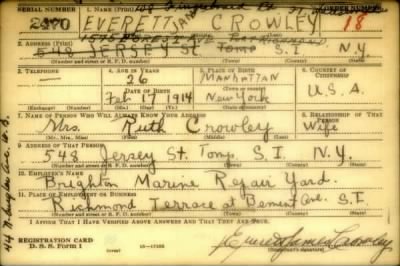 SERIAL NUMBER 1. NAME (Print) ORDER NUMBER
2370 EVERETT JAMES CROWLEY 18
2. ADDRESS (Print)
548 JERSEY ST Tomp S.I. N.Y.
(Number and street or R. F. D. number) (Town) (County) (State)
3. TELEPHONE 4. AGE IN YEARS 5. PLACE OF BIRTH 6. COUNTRY OF CITIZENSHIP
26 MANHATTAN
DATE OF BIRTH (Town or county)
Feb 17 1914 New York U.S.A.
(Exchange) (Number) (Mo.) (Day) (Yr.) (State or country)
7. NAME OF PERSON WHO WILL ALWAYS KNOW YOUR ADDRESS 8. RELATIONSHIP OF THAT PERSON
Mrs. Ruth Crowley Wife
(Mr., Mrs., Miss) (First) (Middle) (Last)
9. ADDRESS OF THAT PERSON
548 Jersey St. Tomp. S.I. N.Y.
(Number and street or R. F. D. number) (Town) (County) (State)
10. EMPLOYER'S NAME
Brighton Marine Repair Yard.
11. PLACE OF EMPLOYMENT OR BUSINESS
Richmond Terrace at Bement Ave. S.I
(Number and street or R. F. D. number) (Town) (County) (State)
I AFFIRM THAT I HAVE VERIFIED ABOVE ANSWERS AND THAT THEY ARE TRUE.
REGISTRATION CARD
D. S. S. Form 1
Everett James Crowley